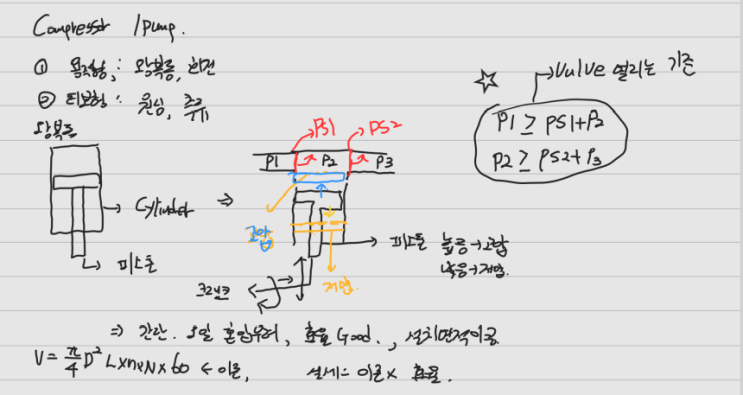 Compressor / Pump.
① 용적형 : 왕복동, 회전
② 터보형 : 원심, 축류
왕복동
→ Cylinder ⇒
→ 피스톤
PS1 PS2
P1 P2 P3
고압
→ 피스톤 높음→고압
낮음→저압.
저압.
크랭크
☆ → Valve 열리는 기준
P1 ≥ PS1+P2
P2 ≥ PS2+P3
⇒ 간단. 오일 혼입우려, 효율 Good., 설치면적
V = π/4 D² L×n×N×60 ← 이론, 실제 = 이론 × 효율.